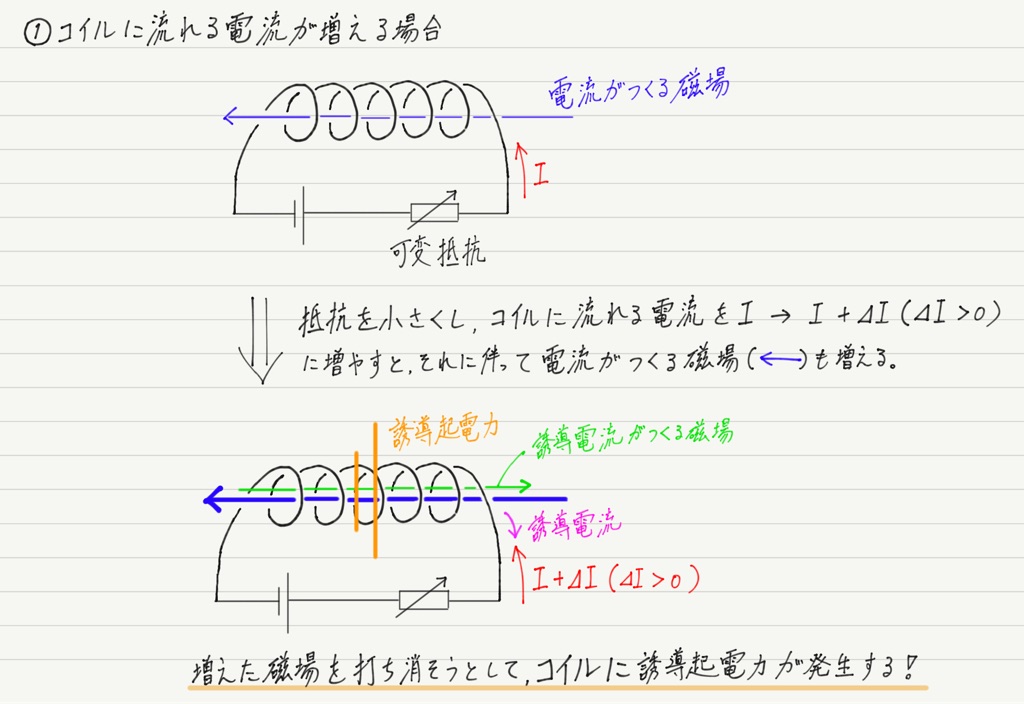 ①コイルに流れる電流が増える場合
電流がつくる磁場
I
可変抵抗
抵抗を小さくし,コイルに流れる電流をI → I+ΔI(ΔI>0)
に増やすと,それに伴って電流がつくる磁場(←)も増える。
誘導起電力
誘導電流がつくる磁場
誘導電流
I+ΔI(ΔI>0)
増えた磁場を打ち消そうとして,コイルに誘導起電力が発生する!